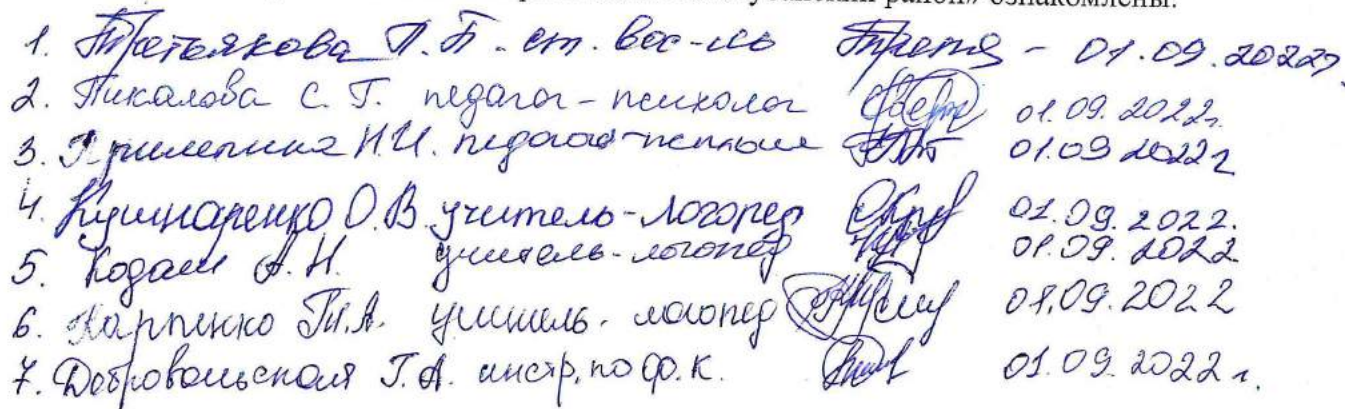 район» ознакомлены:
1. Третьякова П.П. - ст. вос-ль - 01.09.2022г.
2. Пикалова С.Г. педагог-психолог 01.09.2022г.
3. Прилепина Н.И. педагог-психолог 01.09 2022г
4. Кушнаренко О.В. учитель-логопед 01.09.2022.
5. Кодаш А.Н. учитель-логопед 01.09.2022
6. Карпенко Т.А. учитель-логопед 01.09.2022
7. Добровольская Г.А. инстр. по ф.к. 01.09.2022 г.